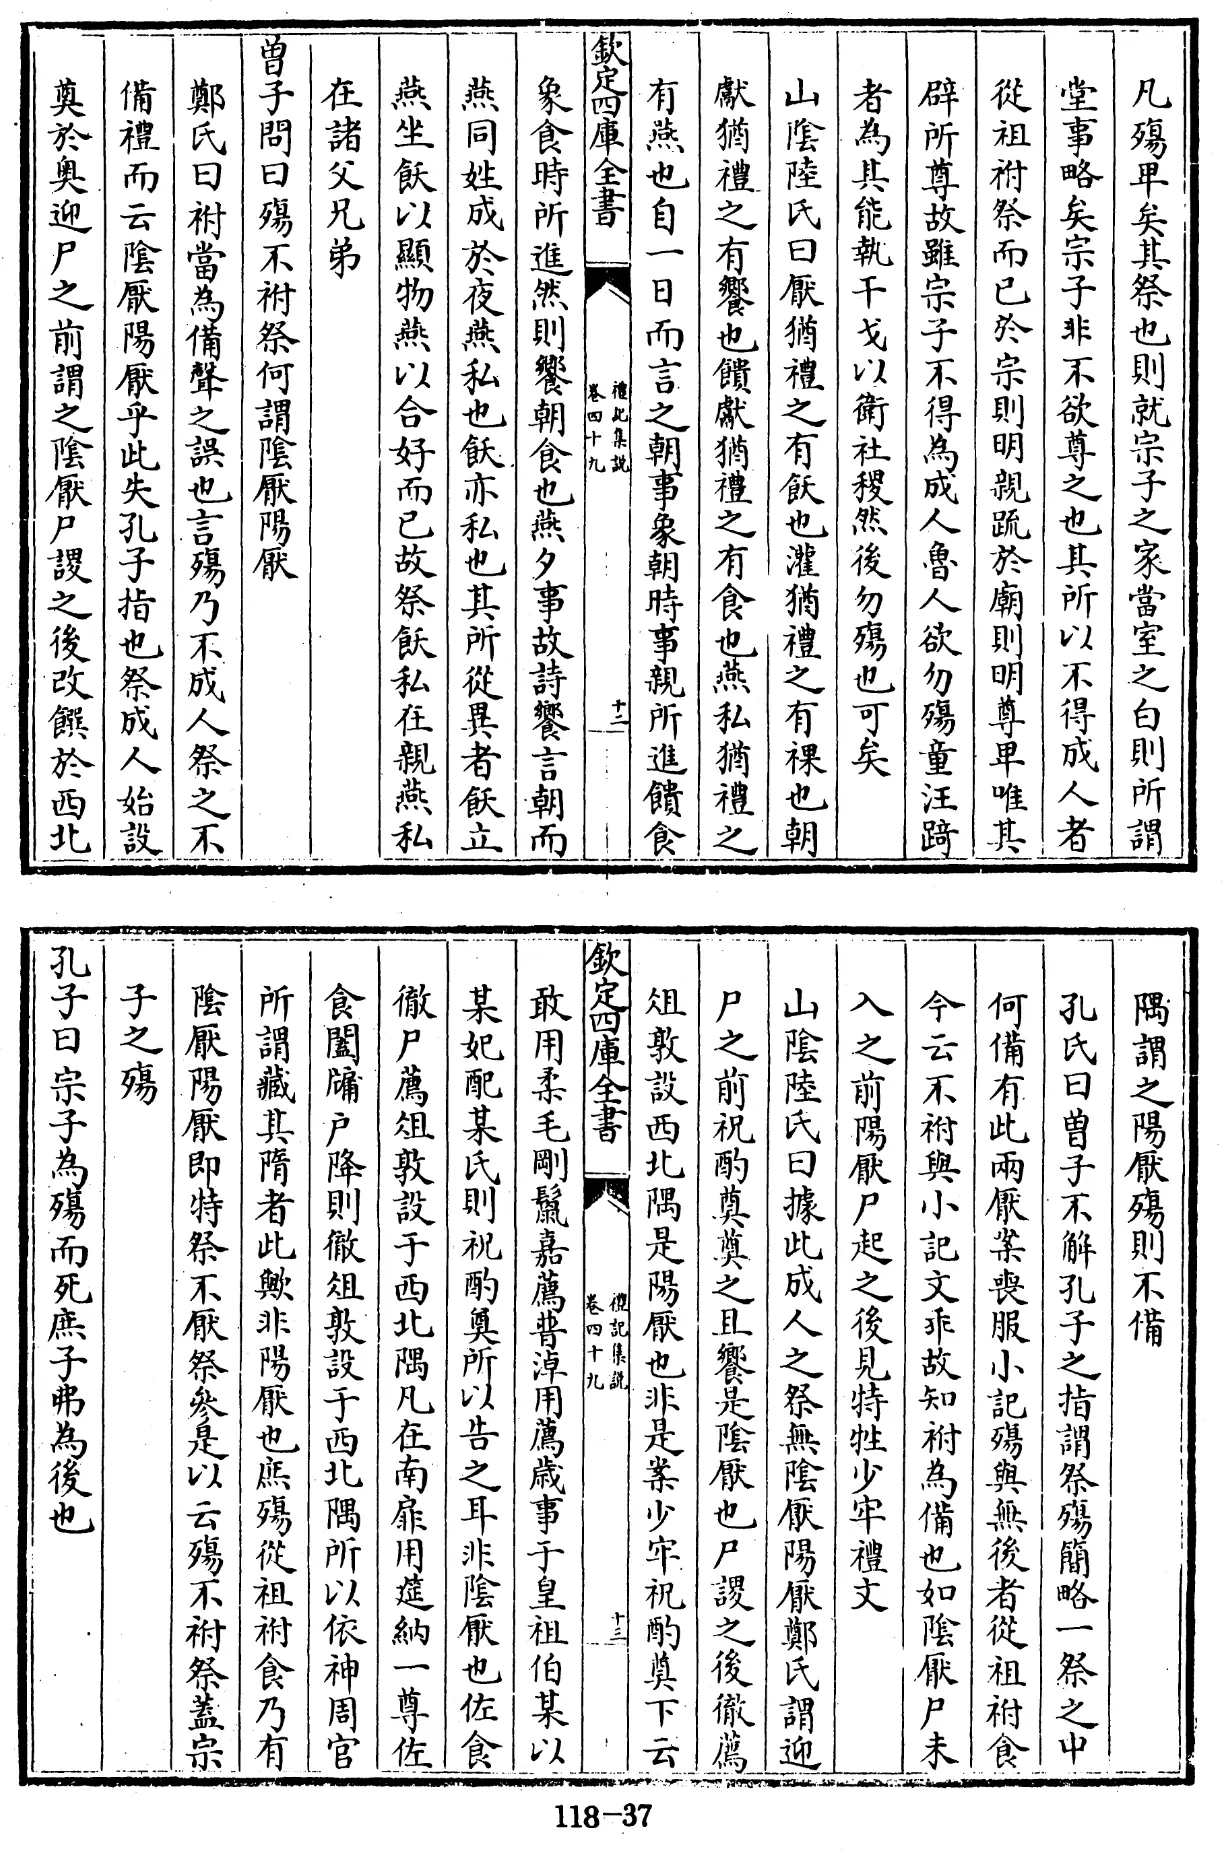 凡殤卑矣其祭也則就宗子之家當室之白則所謂
堂事略矣宗子非不欲尊之也其所以不得成人者
從祖祔祭而已於宗則明親疏於廟則明尊卑唯其
辟所尊故雖宗子不得為成人魯人欲勿殤童汪踦
者為其能執干戈以衛社稷然後勿殤也可矣
山陰陸氏曰厭猶禮之有飫也灌猶禮之有祼也朝
獻猶禮之有饗也饋獻猶禮之有食也燕私猶禮之
有燕也自一日而言之朝事象朝時事親所進饋食
欽定四庫全書
禮記集說
卷四十九
十二
象食時所進然則饗朝食也燕夕事故詩饗言朝而
燕同姓成於夜燕私也飫亦私也其所從異者飫立
燕坐飫以顯物燕以合好而已故祭飫私在親燕私
在諸父兄弟
曾子問曰殤不祔祭何謂陰厭陽厭
鄭氏曰祔當為備聲之誤也言殤乃不成人祭之不
備禮而云陰厭陽厭乎此失孔子指也祭成人始設
奠於奧迎尸之前謂之陰厭尸謖之後改饌於西北
隅謂之陽厭殤則不備
孔氏曰曾子不解孔子之指謂祭殤簡略一祭之中
何備有此兩厭案喪服小記殤與無後者從祖祔食
今云不祔與小記文乖故知祔為備也如陰厭尸未
入之前陽厭尸起之後見特牲少牢禮文
山陰陸氏曰據此成人之祭無陰厭陽厭鄭氏謂迎
尸之前祝酌奠奠之且饗是陰厭也尸謖之後徹薦
俎敦設西北隅是陽厭也非是案少牢祝酌奠下云
欽定四庫全書
禮記集說
卷四十九
十三
敢用柔毛剛鬣嘉薦普淖用薦歲事于皇祖伯某以
某妃配某氏則祝酌奠所以告之耳非陰厭也佐食
徹尸薦俎敦設于西北隅凡在南扉用筵納一尊佐
食闔牖户降則徹俎敦設于西北隅所以依神周官
所謂藏其隋者此歟非陽厭也庶殤從祖祔食乃有
陰厭陽厭即特祭不厭祭參是以云殤不祔祭蓋宗
子之殤
孔子曰宗子為殤而死庶子弗為後也
118-37